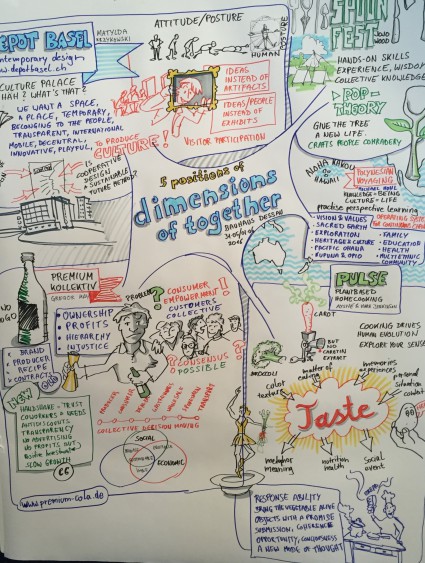 DEPOT BASEL
contemporary design
w.depotbasel.ch
MATYLDA
KRZYKOWSKI
CULTURE PALACE
HAH? WHAT'S THAT?
WE WANT A SPACE,
A PLACE, TEMPORARY,
BELONGING TO THE PEOPLE,
TRANSPARENT, INTERNATIONAL
MOBILE, DECENTRAL,
INNOVATIVE, PLAYFUL,
TO PRODUCE
CULTURE!
ATTITUDE/POSTURE
HUMAN
POSTURE
IDEAS
INSTEAD OF
ARTIFACTS
IDEAS/PEOPLE
INSTEAD OF
EXHIBITS
VISITOR PARTICIPATION
IS
COOPERATIVE
DESIGN
A SUSTAINABLE
FUTURE METHOD?
5 positions of
dimensions
of together
BAUHAUS DESSAU
2016
SPOON
FEST
WOOD
HANDS-ON SKILLS
EXPERIENCE, WISDOM
COLLECTIVE KNOWLEDGE
POP-
THEORY
GIVE THE TREE
A NEW LIFE.
CRAFTS PEOPLE COMRADERY
HAWAII
POLYNESIAN
VOYAGING
KNOWLEDGE=BEING
CULTURE=LIFE
practise perspective learning
VISION & VALUES
SACRED EARTH
EXPLORATION
HERITAGE & CULTURE
PACIFIC OHANA
KUPUNA & OPIO
OPERATING
FAMILY
EDUCATION
HEALTH
MULTIETHNIC
COMMUNITY
PULSE
PLANTBASED
HOMECOOKING
COOKING DRIVES
HUMAN EVOLUTION
EXPLORE YOUR SENSES
CAROT
BUT
NO
CAROTIN
EXTRACT
BROCCOLI
color
texture
matter of
eating
memories
experiences
personal
situation
context
Taste
metaphor
meaning
nutrition
health
social
event
RESPONSE ABILITY
BRING THE VEGETABLE ALIVE
OBJECTS WITH A PROMISE
SUBMISSION, COHERENCE
OPPORTUNITY, CONSCIOUSNESS
A NEW MODE OF THOUGHT
PREMIUM
KOLLEKTIV
GREGOR MAY
NO
LOGO
OWNERSHIP
PROFITS
HIERARCHY
INJUSTICE
PROBLEM?
CONSUMER
EMPOWERMENT!
CUSTOMERS
COLLECTIVE
CONSENSUS
POSSIBLE
BRAND
PRODUCER
RECIPE
CONTRACTS
NEW
HANDSHAKE = TRUST
COWORKERS & NEEDS
ANTIDISCOUNTS
TRANSPARENCY
NO ADVERTISING
NO PROFITS NUT
SLOW GROWTH
TRANSPORT
COLLECTIVE DECISION MAKING
SOCIAL
ECONOMIC
www.premium-cola.de